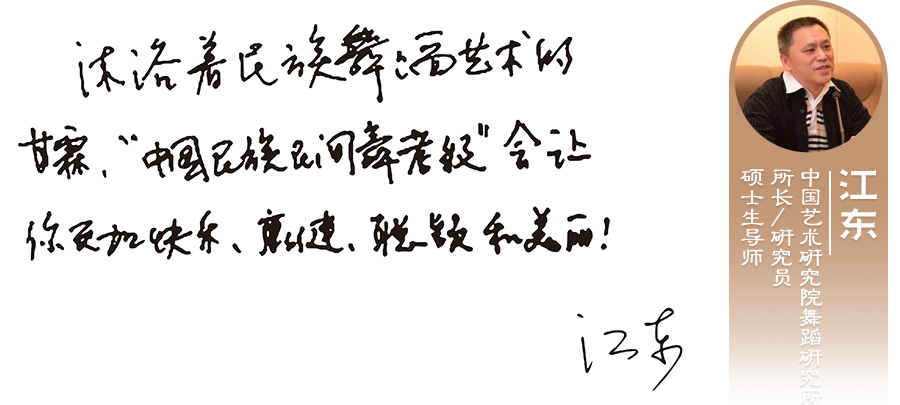 沫浴着民族舞蹈艺术的
甘霖，“中国民族民间舞考级”会让
你更加快乐、康健、聪颖和美丽！
江东
江东
中国艺术研究院舞蹈研究所
所长/研究员
硕士生导师